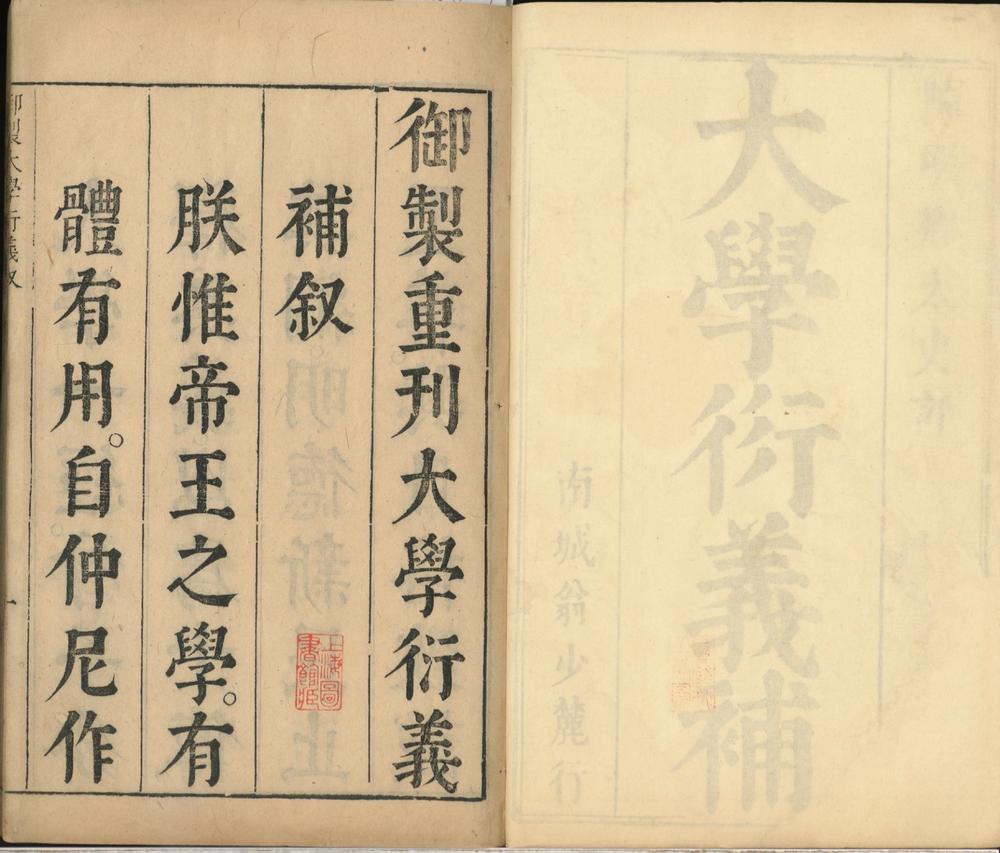 大學衍義補
南城翁少麓行
御製重刊大學衍義
補叙
朕惟帝王之學。有
體有用。自仲尼作
御製大學衍義叙
一
上海圖
書館藏